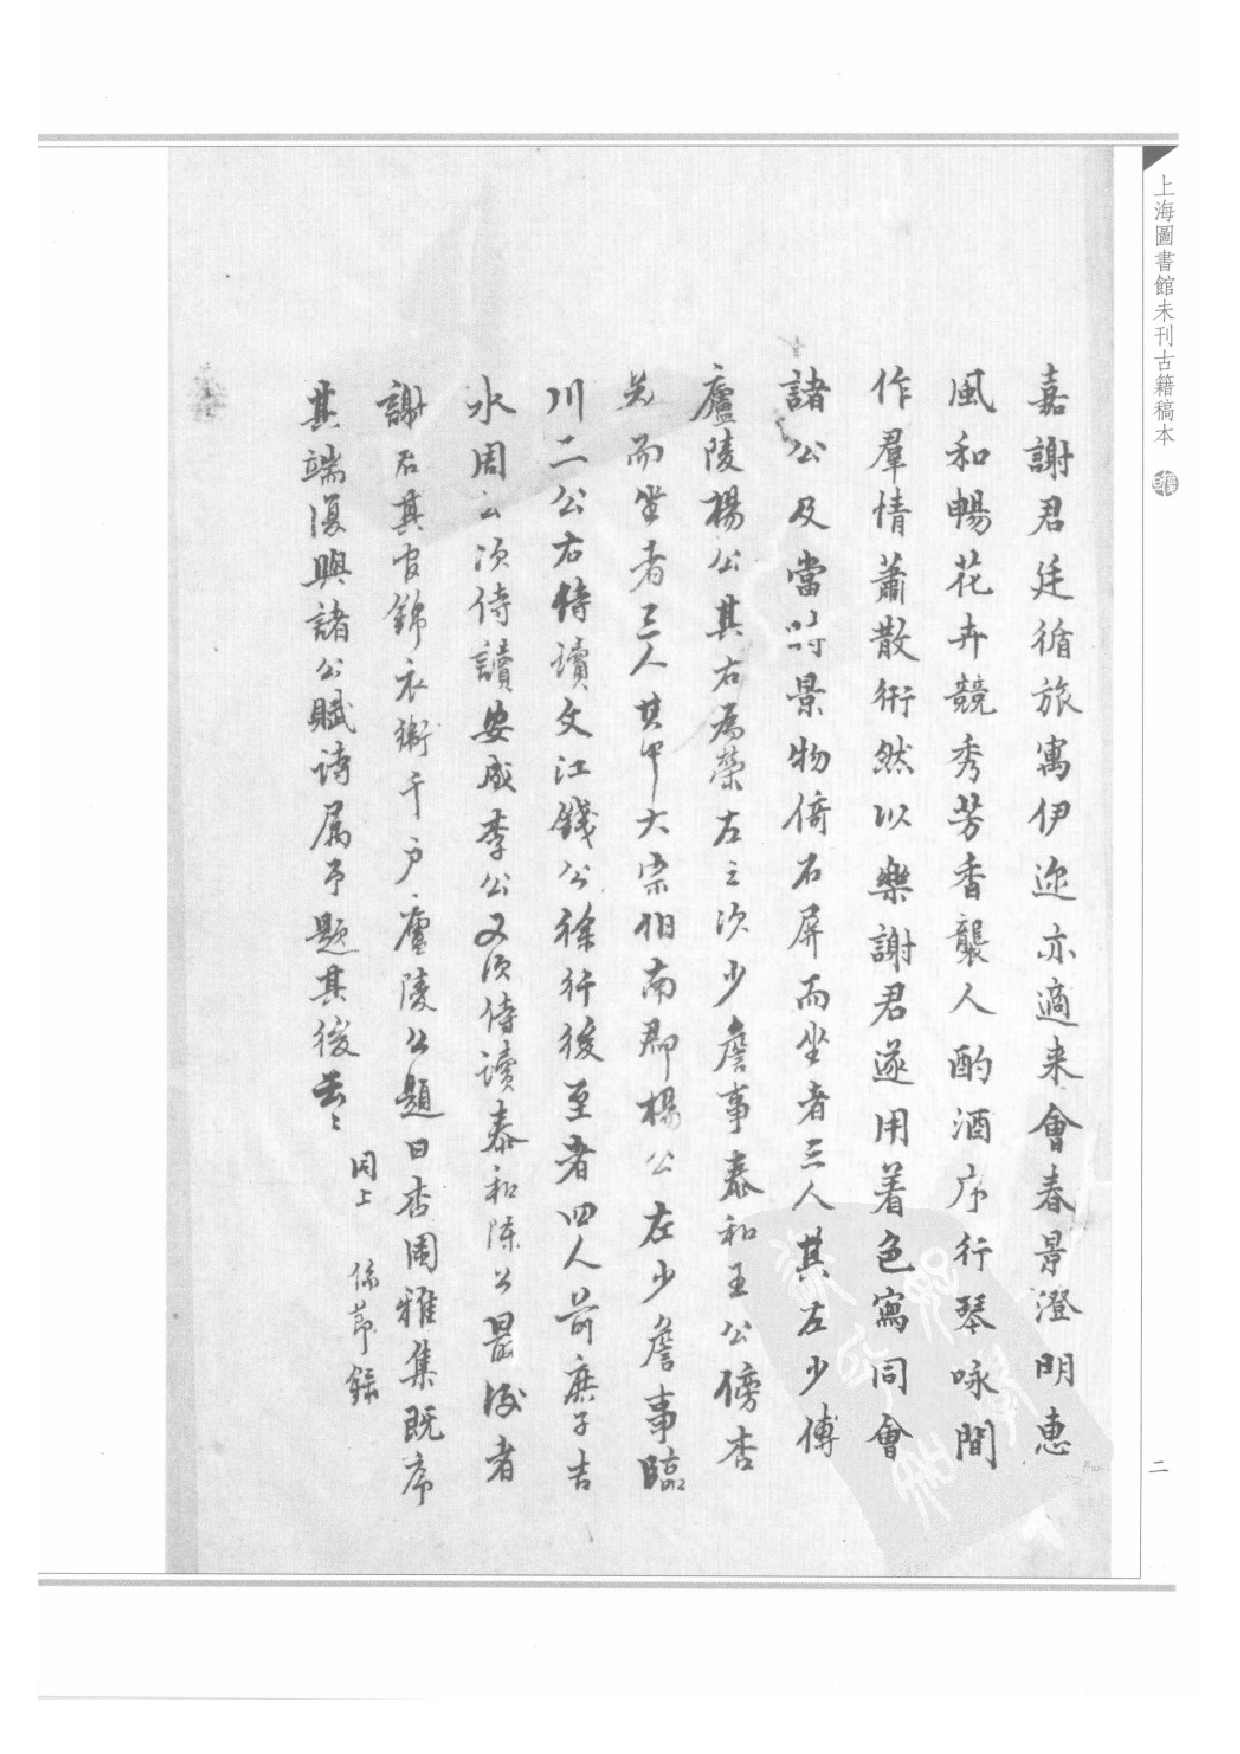 上海圖書館未刊古籍稿本
嘉謝君廷循旅寓伊迩亦適来會春景澄明惠
風和暢花卉競秀芳香襲人酌酒序行琴咏間
作羣情蕭散衎然以樂謝君遂用着色寫同會
諸公及當时景物倚石屏而坐者三人其左少傅
廬陵楊公其右為榮左之次少詹事泰和王公傍杏
而坐者三人其中大宗伯南郡楊公左少詹事臨
川二公右侍讀文江錢公徐行後至者四人前庶子吉
水周公次侍讀安成李公又次侍读泰和陳公最後者
謝君其官錦衣衛千户廬陵公題曰杏園雅集既序
其端復與諸公賦诗属予題其後云〻
同上 節録
二